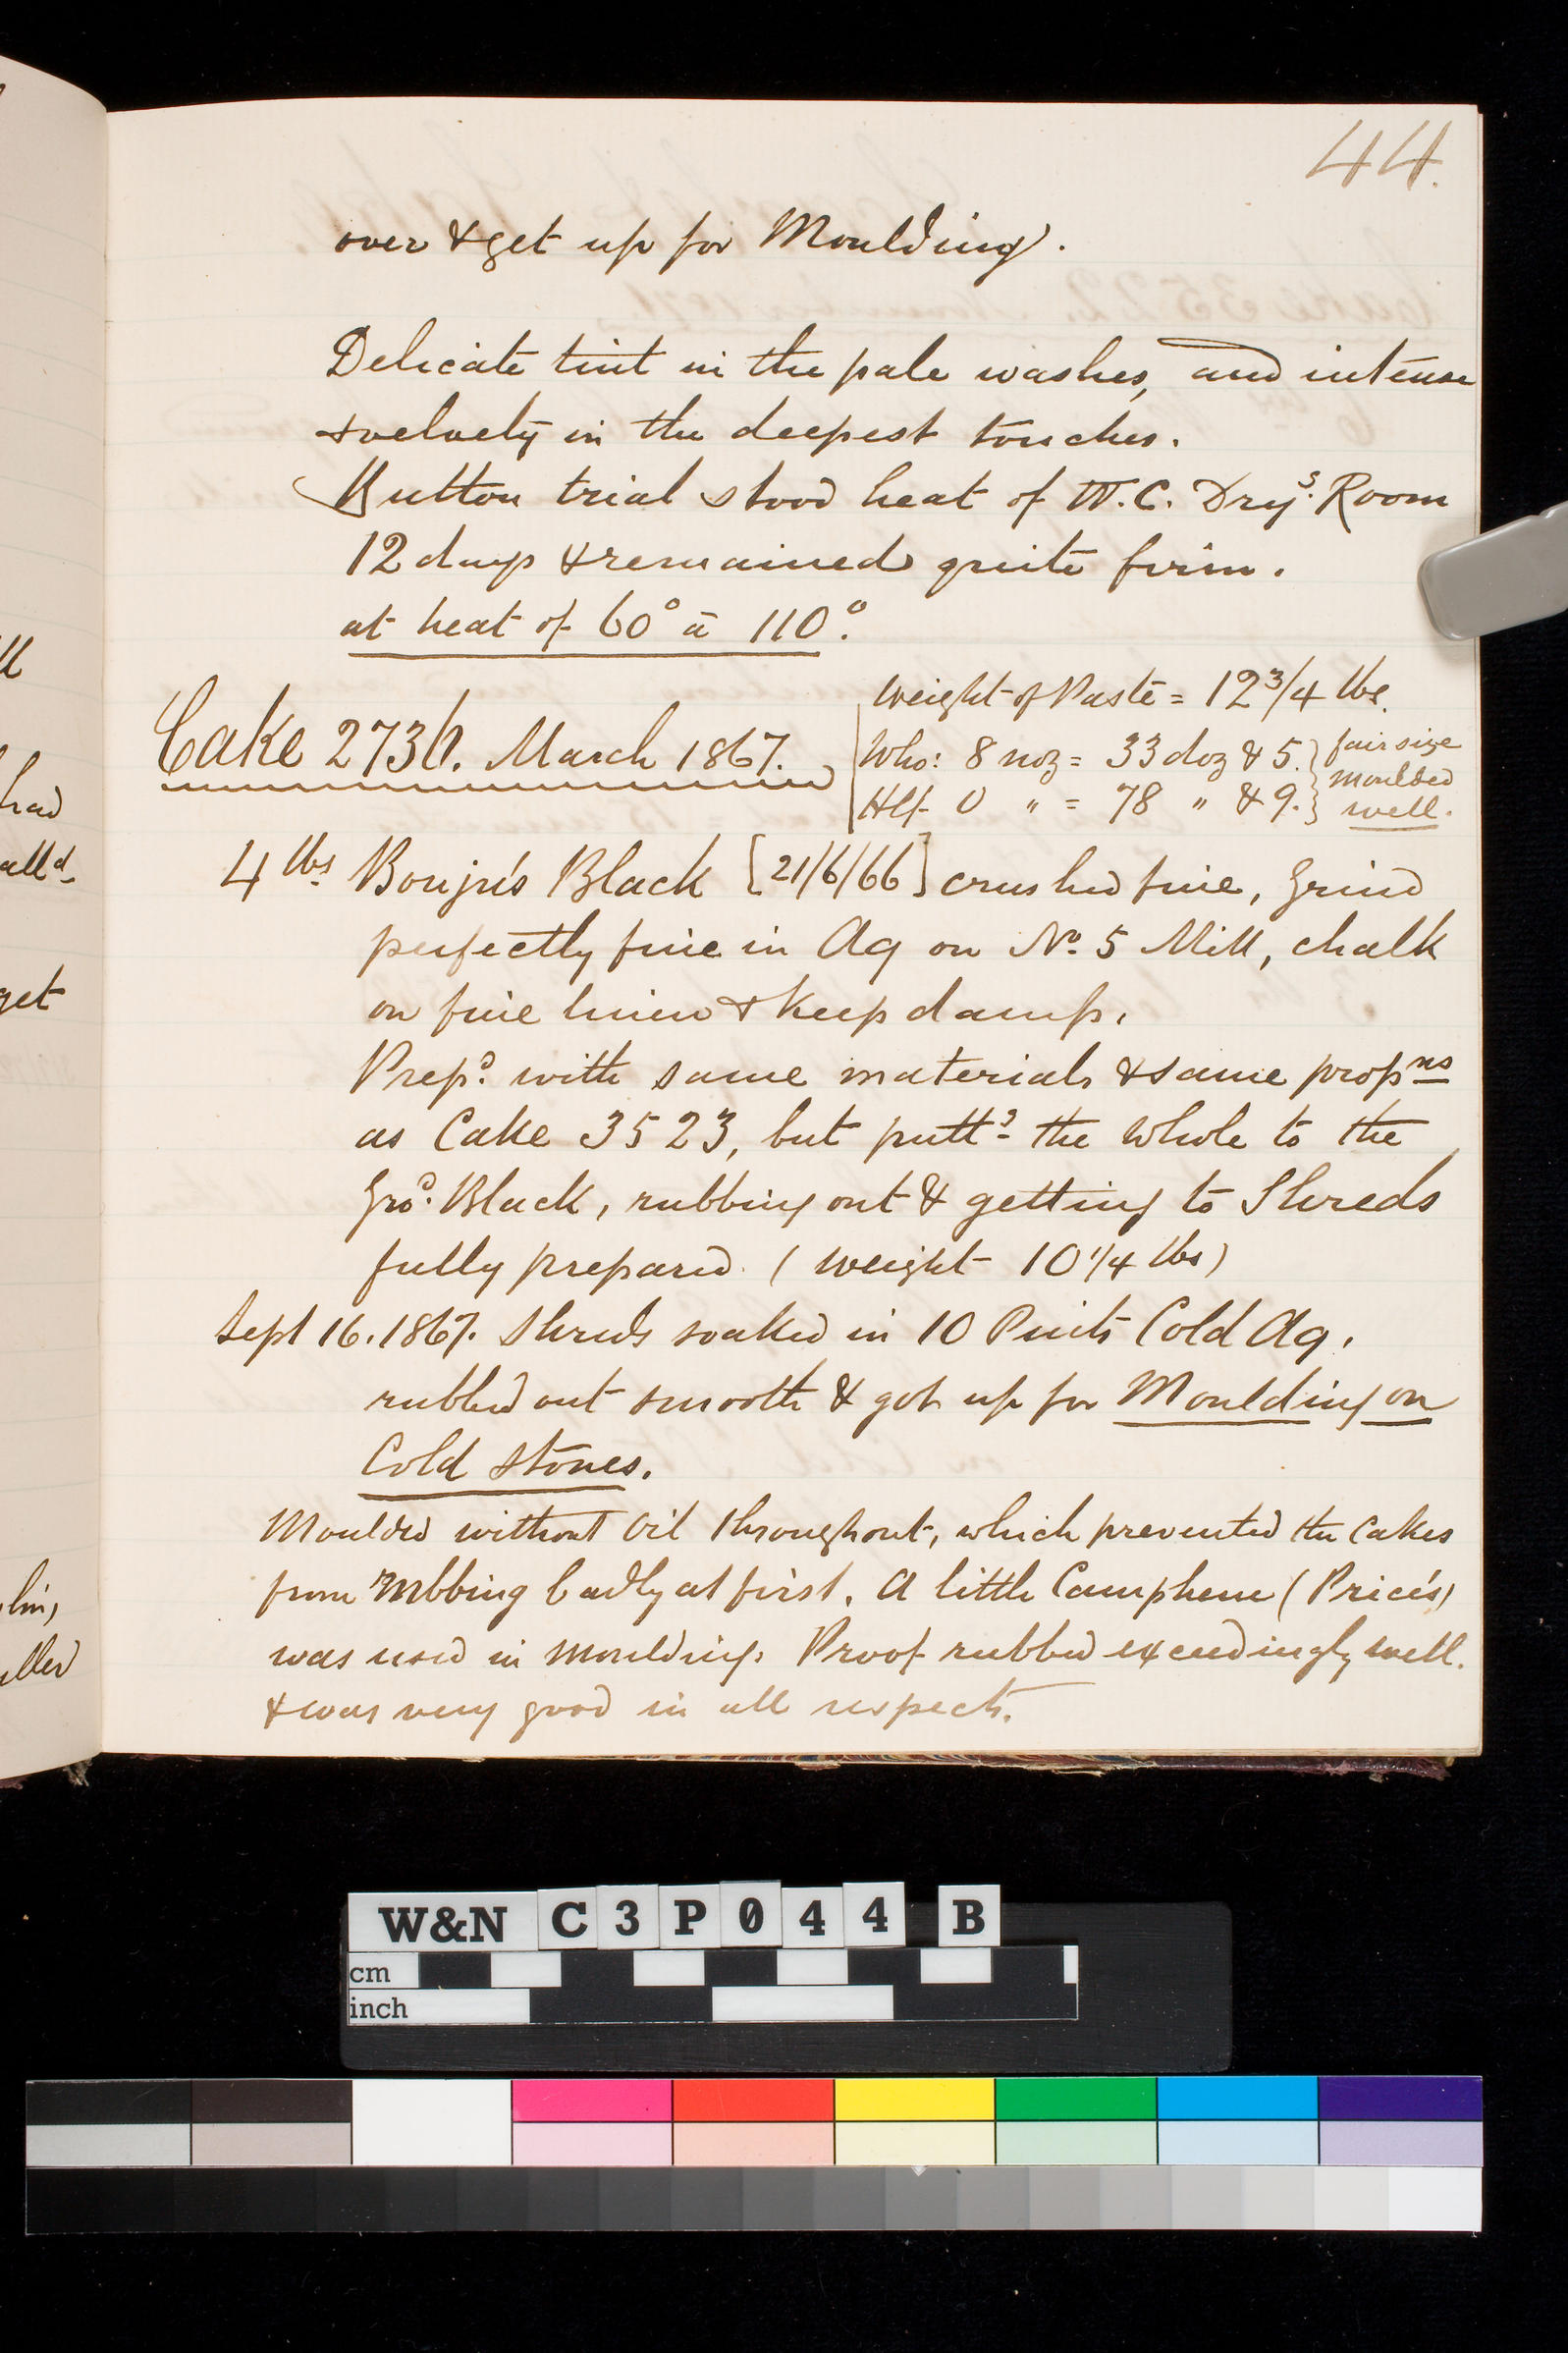 44.
over & get up for Moulding.
Delicate tint in the pale washes, and intense
& velvety in the deepest touches.
Button trial stood heat of W.C. Dryg. Room
12 days & remained quite firm.
at heat of 60° à 110°.
Weight of Paste = 12 3/4 lbs.
Cake 2736. March 1867.
Who: 8 noz = 33 doz & 5. } fair size
moulded
Hlf. 0 " = 78 " & 9. } well.
4 lbs Bouju's Black [21/6/66] crushed fine, Grind
perfectly fine in Aq on No. 5 Mill, chalk
on fine linen & keep damp.
Prepd. with same materials & same propns
as Cake 3523, but puttg the whole to the
Grd. Black, rubbing out & getting to Shreds
fully prepared. (Weight 10 1/4 lbs)
Sept 16. 1867. Shreds soaked in 10 Pints Cold Aq.
rubbed out smooth & got up for Moulding on
Cold Stones.
Moulded without Oil throughout, which prevented the Cakes
from rubbing badly at first. A little Camphene (Price's)
was used in moulding. Proof rubbed exceedingly well.
& was very good in all respects.
ll
had
alld.
get
lin,
uller
W&N C3P044 B
cm
inch